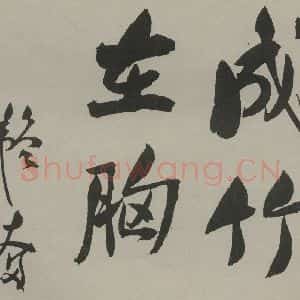 成竹
在胸
Shufawang.CN